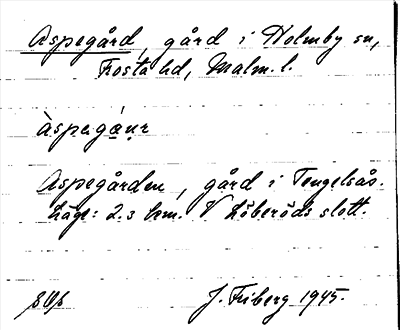 Aspegård, gård i Holmby sn,
Frosta hd, Malm. l.
àspegá̱ṇr
Aspegården, gård i Tengelsås.
Läge: 2.3 km. V Löberöds slott.
J. Friberg 1945.